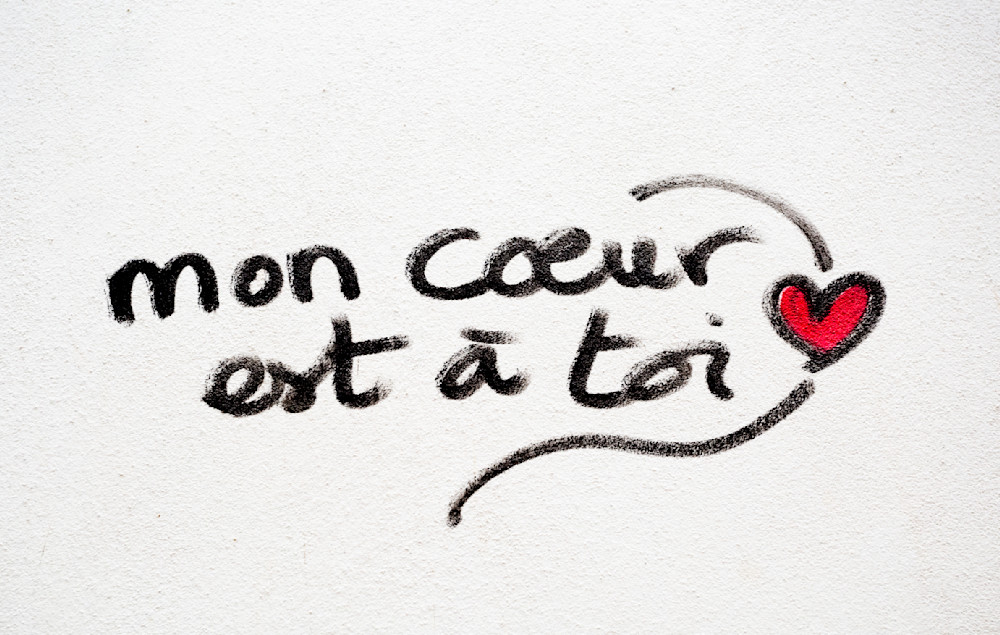 mon cœur
est à toi